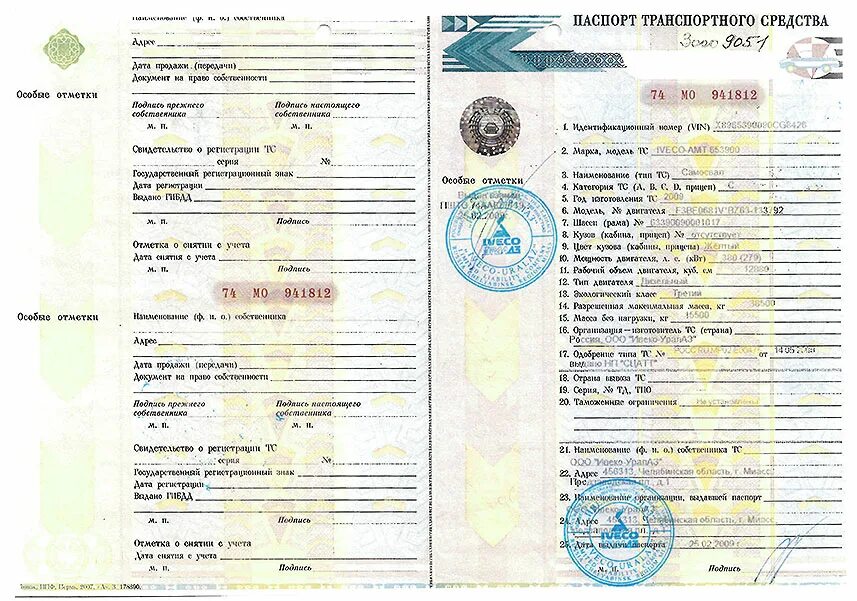 Наименование (ф. и. о.) собственника
Адрес
Дата продажи (передачи)
Документ на право собственности
Особые отметки
Подпись прежнего собственника
Подпись настоящего собственника
м. п.
м. п.
Свидетельство о регистрации ТС
серия №
Государственный регистрационный знак
Дата регистрации
Выдано ГИБДД
м. п. Подпись
Отметка о снятии с учета
Дата снятия с учета
м. п. Подпись
74 МО 941812
Особые отметки
Наименование (ф. и. о.) собственника
Адрес
Дата продажи (передачи)
Документ на право собственности
Подпись прежнего собственника
Подпись настоящего собственника
м. п.
м. п.
Свидетельство о регистрации ТС
серия №
Государственный регистрационный знак
Дата регистрации
Выдано ГИБДД
м. п. Подпись
Отметка о снятии с учета
Дата снятия с учета
м. п. Подпись
ПАСПОРТ ТРАНСПОРТНОГО СРЕДСТВА
9051
74 МО 941812
Особые отметки
IVECO
1. Идентификационный номер (VIN)
2. Марка, модель ТС IVECO-AMT 653900
3. Наименование (тип ТС) Самосвал
4. Категория ТС (А, В, С, D, прицеп) С
5. Год изготовления ТС 2009
6. Модель, № двигателя
7. Шасси (рама) №
8. Кузов (кабина, прицеп) № отсутствует
9. Цвет кузова (кабины, прицепа) Желтый
10. Мощность двигателя, л. с. (кВт) 380 (279)
11. Рабочий объем двигателя, куб. см
12. Тип двигателя Дизельный
13. Экологический класс Третий
14. Разрешенная максимальная масса, кг
15. Масса без нагрузки, кг 15500
16. Организация—изготовитель ТС (страна)
Россия, ООО "Ивеко-УралАЗ"
17. Одобрение типа ТС № от
НП "СЦАТТ"
18. Страна вывоза ТС
19. Серия, № ТД, ТПО
20. Таможенные ограничения Не установлены
21. Наименование (ф. и. о.) собственника ТС
ООО "Ивеко-УралАЗ"
22. Адрес 456313, Челябинская область, г. Миасс
23. Наименование организации, выдавшей паспорт
24. Адрес 456313, Челябинская область, г. Миасс
25. Дата выдачи паспорта 25.02.2009 г
IVECO
м. п. Подпись